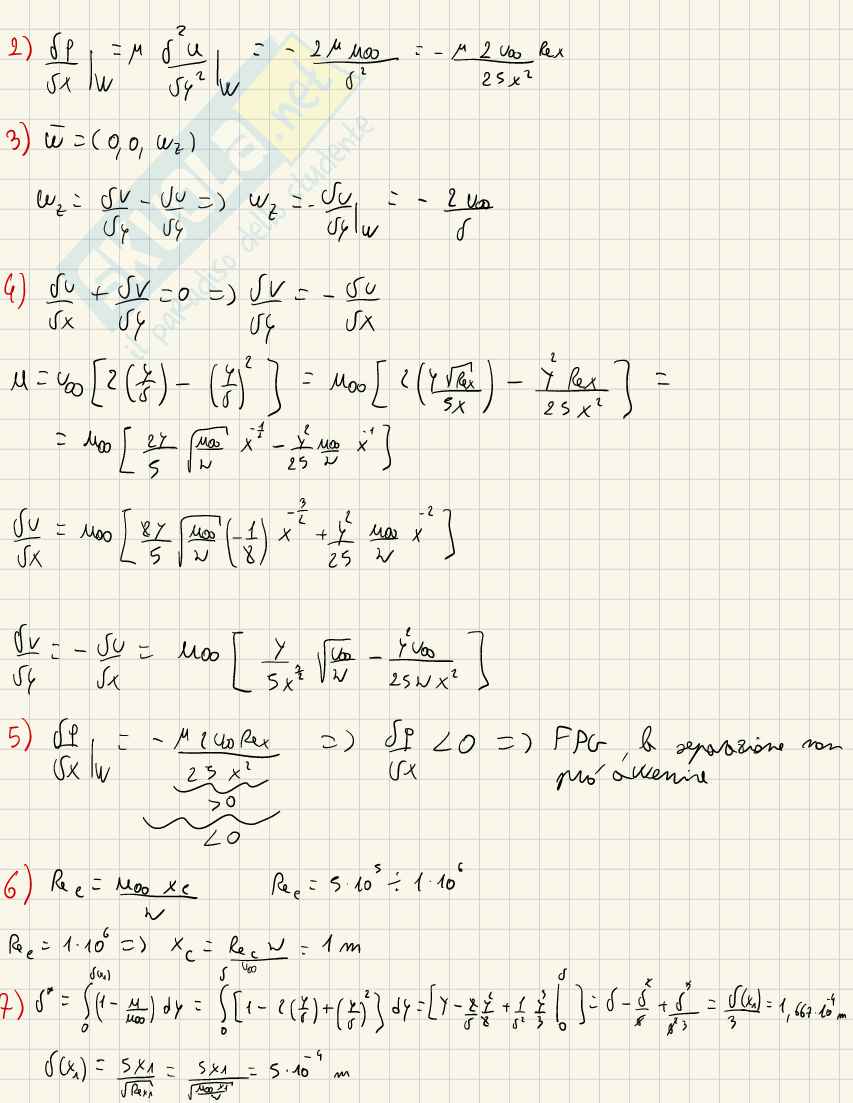 2) δp/δx |w = μ δ²u/δy² |w = - 2 μ u∞/δ² = - μ 2 u∞ Rex/25x²
3) w̄ = (0, 0, wz)
wz = δv/δy - δu/δy => wz = - δu/δy |w = - 2 u∞/δ
4) δu/δx + δv/δy = 0 => δv/δy = - δu/δx
u = u∞ [2(y/δ) - (y/δ)²] = u∞ [2(y√Rex/5x) - y² Rex/25x²] =
= u∞ [2y/5 √(u∞/ν) x^(-1/2) - y²/25 u∞/ν x^(-1)]
δu/δx = u∞ [2y/5 √(u∞/ν) (-1/2) x^(-3/2) + y²/25 u∞/ν x^(-2)]
δv/δy = - δu/δx = u∞ [y/5x^(3/2) √(u∞/ν) - y² u∞/25νx²]
5) δp/δx |w = - μ 2 u∞ Rex/25x² => δp/δx < 0 => FPG, la separazione non
può avvenire
>0
<0
6) Rec = u∞ xc/ν Rec = 5·10⁵ ÷ 1·10⁶
Rec = 1·10⁶ => xc = Rec ν/u∞ = 1 m
7) δ* = ∫₀^δ(x₁) (1 - u/u∞) dy = ∫₀^δ [1 - 2(y/δ) + (y/δ)²] dy = [y - 2/δ y²/2 + 1/δ² y³/3 |₀^δ = δ - δ²/δ + δ³/δ²3 = δ(x₁)/3 = 1,667·10⁻⁴ m
δ(x₁) = 5x₁/√Rex₁ = 5x₁/√(u∞ x₁/ν) = 5·10⁻⁴ m
SKUOLA.net
il paradiso dello studente